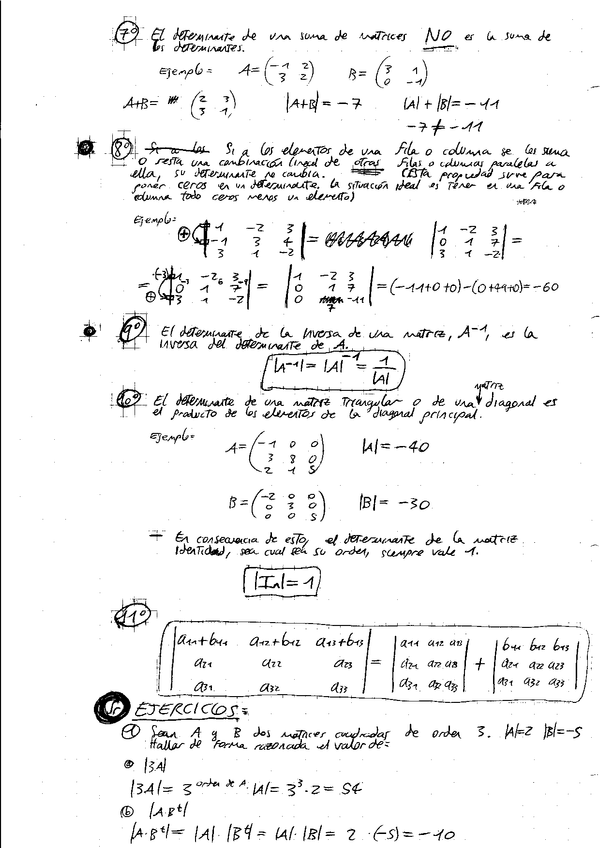 7º El determinante de una suma de matrices NO es la suma de
los determinantes.
Ejemplo= A=(-1 2 / 3 2) B=(3 1 / 0 -1)
A+B= (2 3 / 3 1) |A+B|=-7 |A|+|B|=-11
-7≠-11
8º Si a los elementos de una fila o columna se les suma
o resta una combinación lineal de otras filas o columnas paralelas a
ella, su determinante no cambia. (Esta propiedad sirve para
poner ceros en un determinante. La situación ideal es tener en una fila o
columna todo ceros menos un elemento)
Ejemplo=
|1 -2 3 / -1 3 4 / 3 1 -2| = |1 -2 3 / 0 1 7 / 3 1 -2| =
= |1 -2 3 / 0 1 7 / 3 1 -2| = |1 -2 3 / 0 1 7 / 0 7 -11| = (-11+0+0)-(0+49+0)=-60
9º El determinante de la inversa de una matriz, A⁻¹, es la
inversa del determinante de A.
|A⁻¹|=|A|⁻¹=1/|A|
matriz
10º El determinante de una matriz triangular o de una diagonal es
el producto de los elementos de la diagonal principal.
Ejemplo
A=(-1 0 0 / 3 8 0 / 2 1 5) |A|=-40
B=(-2 0 0 / 0 3 0 / 0 0 5) |B|=-30
En consecuencia de esto, el determinante de la matriz
identidad, sea cual sea su orden, siempre vale 1.
|In|=1
11º
|a11+b11 a12+b12 a13+b13 / a21 a22 a23 / a31 a32 a33| = |a11 a12 a13 / a21 a22 a23 / a31 a32 a33| + |b11 b12 b13 / a21 a22 a23 / a31 a32 a33|
EJERCICIOS=
1 Sean A y B dos matrices cuadradas de orden 3. |A|=2 |B|=-5
Hallar de forma razonada el valor de=
a |3A|
|3A|= 3^orden de A · |A|= 3³·2 = 54
b |A·Bᵗ|
|A·Bᵗ|=|A|·|Bᵗ|=|A|·|B|= 2·(-5)=-10